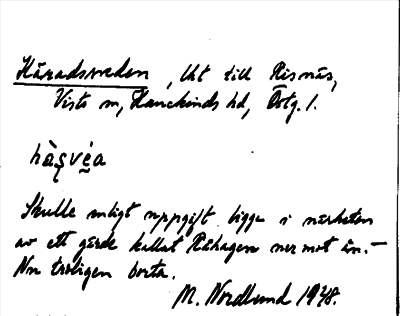 Häradsveden, Ut till Risnäs,
Vists sn, Hanekinds hd, Östg. l.
hàs̨vé̱a
Skulle enligt uppgift ligga i närheten
av ett gärde kallat Råhagen ner mot ån.—
Nu troligen borta.
M. Nordlund 1948.